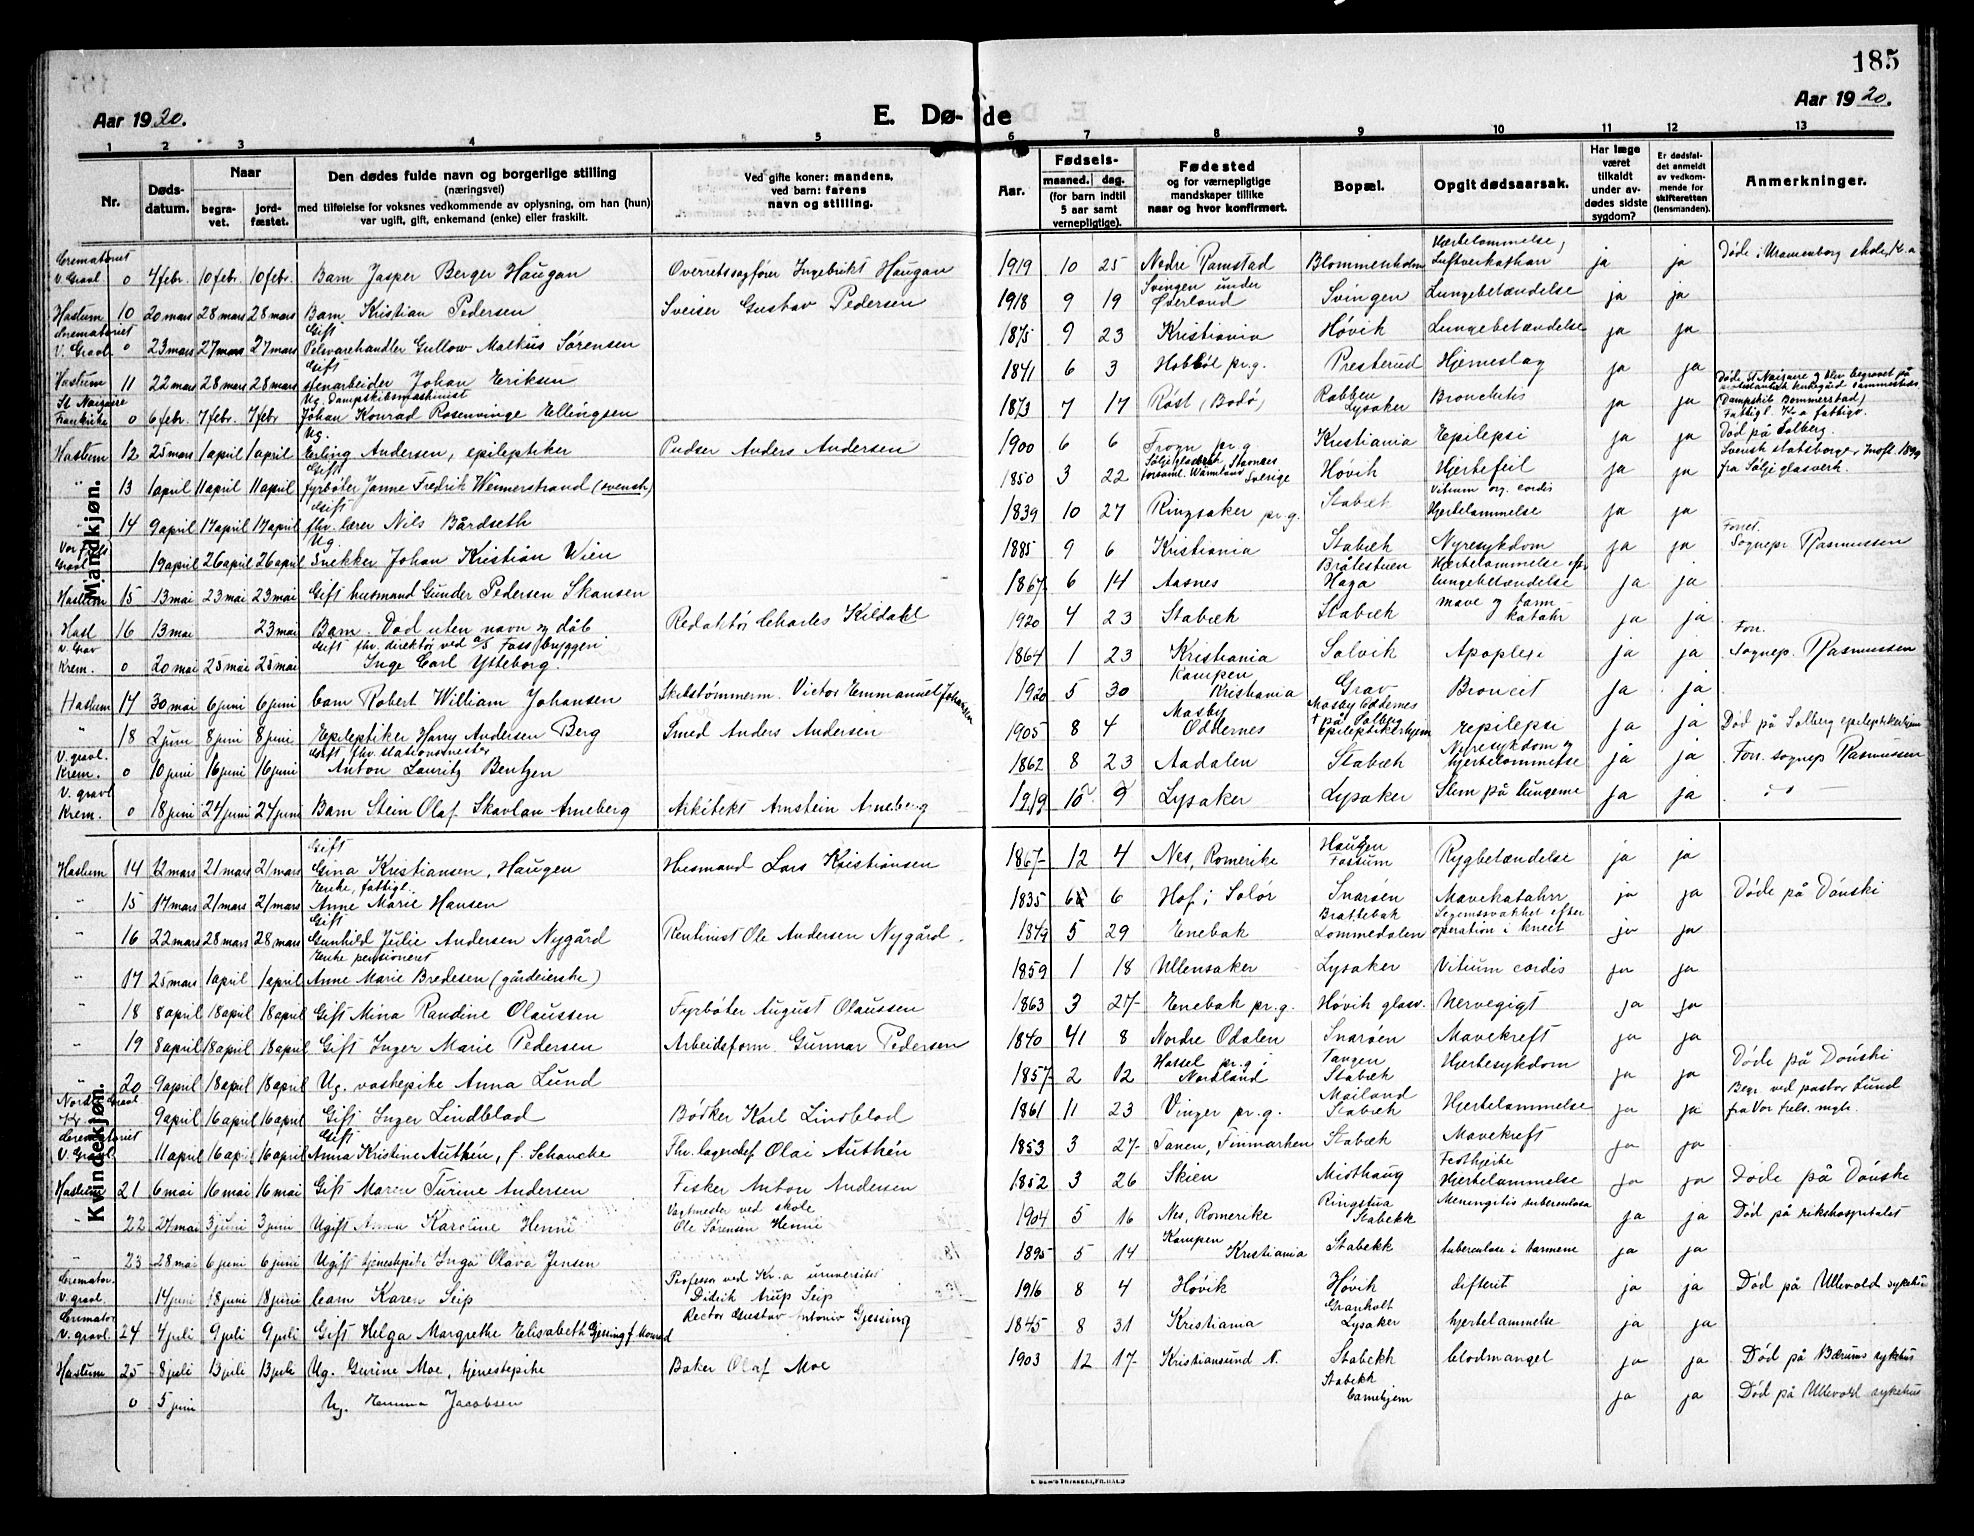 185
Aar 1920.
E. Dø- de
Aar 1920.
1 2 3 4 5 6 7 8 9 10 11 12 13
Nr.
Døds-
datum.
Naar
begra-
vet.
jord-
fæstet.
Den dødes fulde navn og borgerlige stilling
(næringsvei)
med tilføielse for voksnes vedkommende av oplysning, om han (hun)
var ugift, gift, enkemand (enke) eller fraskilt.
Ved gifte koner: mandens,
ved barn: farens
navn og stilling.
Aar.
Fødsels-
maaned. dag.
(for barn indtil
5 aar samt
vernepligtige).
Fødested
og for værnepligtige
mandskaper tillike
naar og hvor konfirmert.
Bopæl.
Opgit dødsaarsak.
Har læge
været
tilkaldt
under av-
dødes sidste
sygdom?
Er dødsfal-
det anmeldt
av vedkom-
mende for
skifteretten
(lensmanden).
Anmerkninger.
Mandkjøn.
Crematoriet V. Gravl. 0 4 febr. 10 febr. 10 febr. Barn Jasper Berger Haugan Overretssagfører Ingebrikt Haugan 1919 10 25 Nedre Ramstad Blommenholm Hjertelammelse, Luftverkatharr ja ja Døde i Uranienborg skole, Kr.a
Haslum 10 20 mars 28 mars 28 mars Barn Kristian Pedersen Sveiser Gustav Pedersen 1918 9 19 Svingen under Øverland Svingen Lungebetændelse ja ja
Crematoriet V. Gravl. 0 23 mars 27 mars 27 mars Gift Pelsvarehandler Gullow Malthus Sørensen 1875 9 23 Kristiania Høvik Lungebetændelse ja ja
Haslum 11 22 mars 28 mars 28 mars Gift stenarbeider Johan Eriksen 1841 6 3 Hobbøl pr.g. Presterud Hjerneslag ja ja
St Nazaire Frankrike 0 6 febr. 7 febr. 7 febr Ug. Dampskibsmaskinist Johan Konrad Rosenvinge Ellingsen 1873 7 17 Røst (Bodø) Rabben Lysaker Bronchitis ja ja Døde i St Nazaire og blev begravet på protestantisk kirkegård sammesteds (Dampskib Bommerstad)
Haslum 12 25 mars 1 april 1 april Ug. Erling Andersen, epileptiker Pudser Anders Andersen 1900 6 6 Frogn pr.g. Kristiania Epilepsi ja ja Fattigl. Kr.a fattigv. Død på Solberg.
" 13 1 april 11 april 11 april Gift fyrbøter Janne Fredrik Wennerstrand (svensk) 1850 3 22 Sölje Glasbruk Stavnäs forsaml. Wärmland Sverige Høvik Hjertefeil ja ja Svensk statsborger, Indfl. 1899 fra Sölje glasverk.
" 14 9 april 17 april 17 april Gift fhv. lærer Nils Bårdseth 1839 10 27 Ringsaker pr.g. Stabæk Vitium org. cordis Hjertelammelse ja ja
Vor Frels Gravl. 19 april 26 april 26 april Ug. Snekker Johan Kristian Wien 1885 9 6 Kristiania Stabæk Nyresykdom ja ja Forret. Sognepr Rasmussen
Haslum 15 13 mai 23 mai 23 mai Gift husmand Gunder Pedersen Skansen 1867 6 14 Aasnes Bråtestuen Haga Hjertelammelse efter lungebetændelse ja ja
Hasl 16 13 mai 23 mai Barn. Død uten navn og dåb Redaktør Charles Kildahl 1920 4 23 Stabæk Stabæk mave og tarmkatahr ja ja
V. Grav Krem. 0 20 mai 25 mai 25 mai Gift fhv. direktør ved A/S Foss bryggeri Inge Carl Ytteborg. 1864 1 23 Kristiania Solvik Apoplexi ja ja Forr. Sognep. Rasmussen
Haslum 17 30 mai 6 juni 6 juni barn Robert William Johansen Skibstømmerm. Victor Emmanuel Johansen 1920 5 30 Kampen Kristiania Grav Broncit ja ja
" 18 2 juni 8 juni 8 juni Epileptiker Harry Andersen Berg Smed Anders Andersen 1905 8 4 Mosby Oddernes Mosby Oddernes + på Solberg Epileptikerhjem epilepsi ja ja Død på Solberg epileptikerhjem
V. gravl. Krem. 0 10 juni 16 juni 16 juni Gift fhv. stationsmester Anton Lauritz Bentzen 1862 8 23 Aadalen Stabæk Nyresykdom og hjertelammelse ja ja Forr. sognep Rasmussen
V. gravl Krem. 0 18 juni 24 juni 24 juni Barn Stein Olaf Skavlan Arneberg Arkitekt Arnstein Arneberg 1919 10 9 Lysaker Lysaker Slim på lungerne ja ja
Kvindekjøn.
Haslum 14 12 mars 21 mars 21 mars Gift Gina Kristiansen, Haugen Husmand Lars Kristiansen 1867 12 4 Nes, Romerike Haugen Fossum Rygbetændelse ja ja
" 15 17 mars 21 mars 21 mars Enke, fattigl. Anne Marie Hansen 1835 6 6 Hof i Solør Snarøen Mavekatahrr ja ja Døde på Dønski
" 16 22 mars 28 mars 28 mars Gift Gunhild Julie Andersen Nygård Rentinist Ole Andersen Nygård. 1849 5 29 Enebak Brattebak Lommedalen Legemssvakhet efter operation i kneet ja ja
" 17 25 mars 1 april 1 april Enke pensioneret Anne Marie Bredesen (gårdeierske) 1859 1 18 Ullensaker Lysaker Vitium cordis ja ja
" 18 8 april 18 april 18 april Gift Mina Randine Olaussen Fyrbøter August Olaussen 1863 3 27 Enebak pr.g. Høvik glasv. Nervegigt ja ja
" 19 8 april 18 april 18 april Gift Inger Marie Pedersen Arbeidsform. Gunnar Pedersen 1840 11 8 Nordre Odalen Snarøen Mavekreft ja ja
" 20 9 april 18 april 18 april Ug. vaskepike Anna Lund 1857 2 12 Hassel pr.g. Nordland Tangen Stabæk Hjertesykdom ja ja Døde på Dønski
Nordst. Gravl 9 april 16 april 16 april Gift Inger Lindblad Bøsker Karl Lindblad 1861 11 23 Vinger pr.g. Mailand Stabæk Hjertelammelse ja ja Begr ved pastor Lund fra Vor frels. mgh.
Crematoriet V. Gravl. 11 april 16 april 16 april Gift Anna Kristine Authén, f. Schancke Fhv. lagerchef Olai Authén 1853 3 27 Tanen, Finmarken Stabæk Mavekreft ja ja
Haslum 21 6 mai 16 mai 16 mai Gift Maren Turine Andersen Fisker Anton Andersen 1852 3 26 Skien Misthaug Fedthjerte Hjertelammelse ja ja Døde på Dønske
" 22 27 mai 3 juni 3 juni Ugift Anna Karoline Henni Vagtmester ved skole Ole Sørensen Henni 1904 5 16 Nes, Romerike Ringstua Stabekk Meningitis tuberculosa ja ja Død på rikshospitalet
" 23 28 mai 6 juni 6 juni Ugift tjenestepike Inga Olava Jensen 1895 5 14 Kampen Kristiania Stabekk tuberculose i tarmene ja ja
Cremator. V. gravl 14 juni 18 juni 18 juni barn Karen Seip Professor ved Kr.a universitet Didrik Arup Seip 1916 8 4 Høvik Høvik difterit ja ja Død på Ullevold sykehus
Cremator V. gravl. 24 4 juli 9 juli 9 juli Gift Helga Margrethe Elisabeth Gjessing f. Monrad Rector Gustav Antonio Gjessing 1845 8 31 Kristiania Granholt Lysaker hjertelammelse ja ja
Haslum 25 8 juli 13 juli 13 juli Ug. Gurine Moe, tjenestepike Baker Olaf Moe 1903 12 17 Kristiansund N. Stabekk blodmangel ja ja Død på Bærums sykehus
0 5 juni Ug. Emma Jacobsen Stabekk barnehjem ja ja Død på Ullevold sykehus